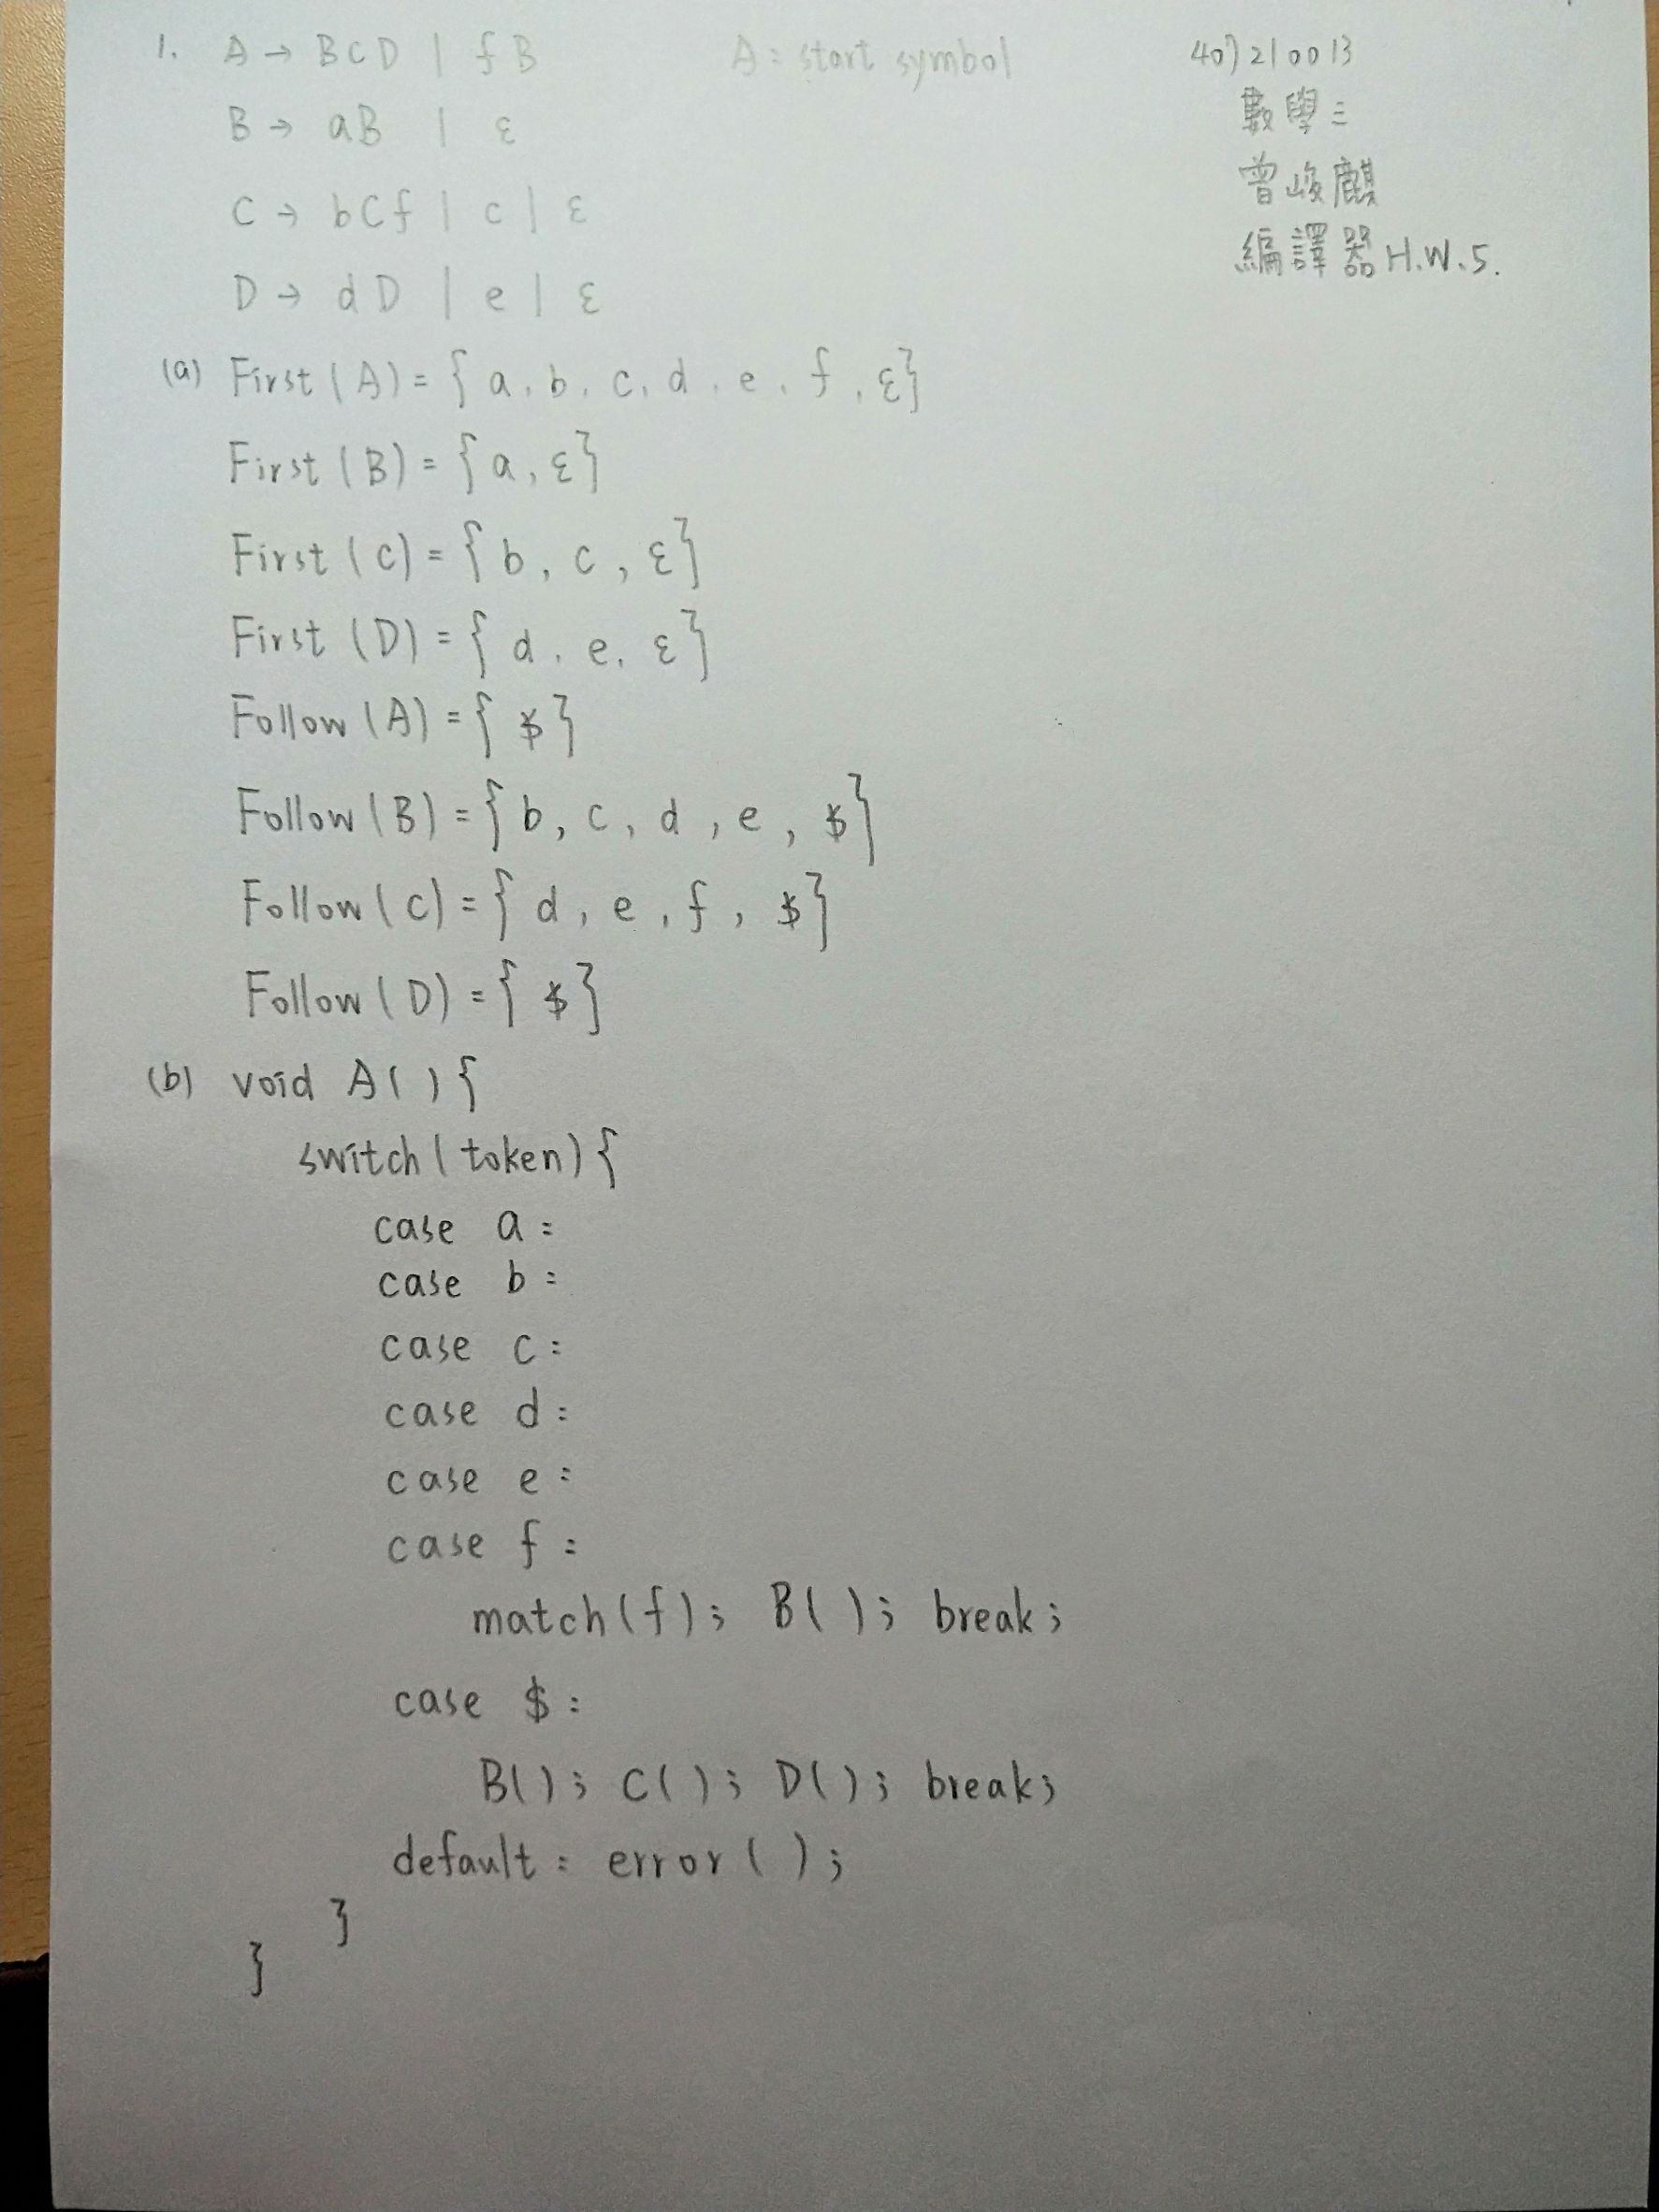 1. A → BCD | fB A: start symbol
B → aB | ε
C → bCf | c | ε
D → dD | e | ε
407210013
數學三
曾峻麒
編譯器 H.W.5.
(a) First(A) = { a, b, c, d, e, f, ε}
First(B) = { a, ε}
First(C) = { b, c, ε}
First(D) = { d, e, ε}
Follow(A) = { $}
Follow(B) = { b, c, d, e, $}
Follow(C) = { d, e, f, $}
Follow(D) = { $}
(b) void A( ) {
switch( token) {
case a:
case b:
case c:
case d:
case e:
case f:
match(f); B( ); break;
case $:
B(); C( ); D( ); break;
default: error( );
}
}